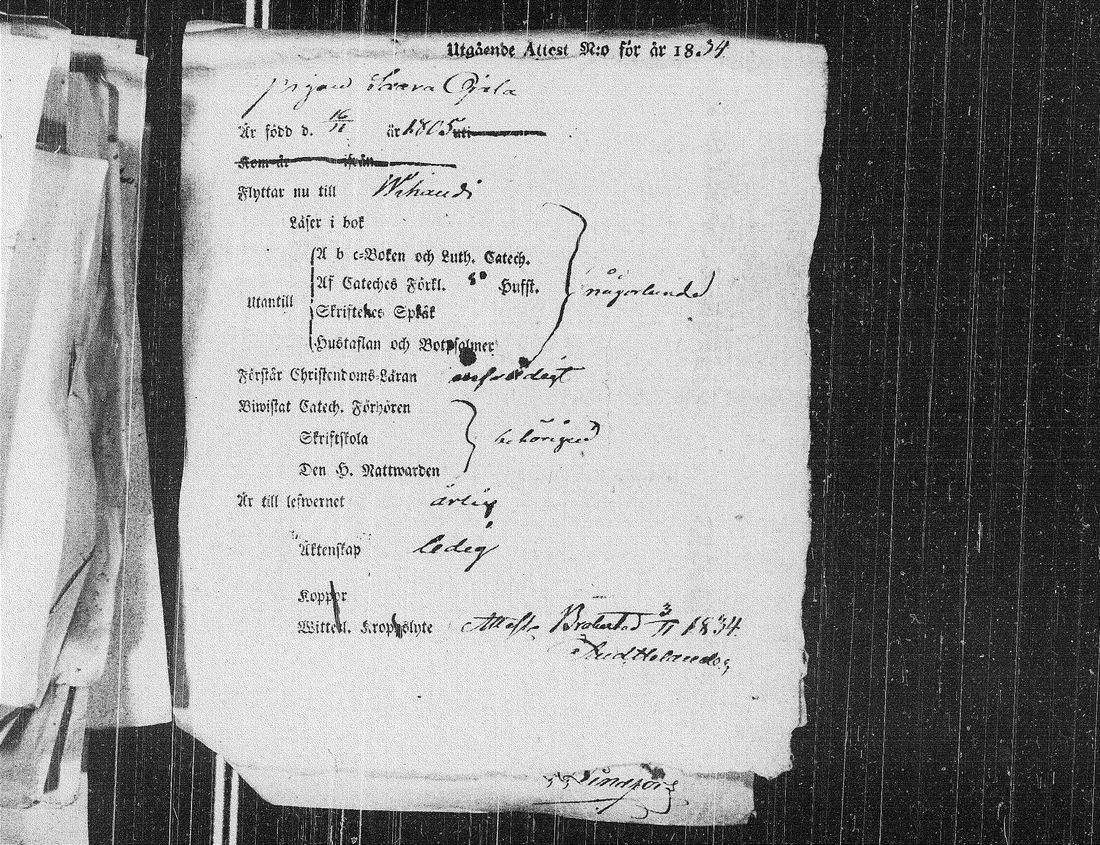 Utgående Attest N:o för år 18.34
Pigan
Är född d. 16/11 år 1805 uti
Kom år ifrån
Flyttar nu till Wihandi
Läser i bok
A b c-Boken och Luth. Catech.
Af Cateches Förkl. Sp Hufft. någorlunda
Utantill
Skriftenes Språk
Hustaflan och Botpsalmer
Förstår Christendoms-Läran enfaldigt
Biwistat Catech. Förhören
Skriftskola behörigen
Den H. Nattwarden
Är till lefwernet ärlig
Äktenskap ledig
Koppor
Witterl. Kroppslyte Attest. Brahestad 3/11 1834